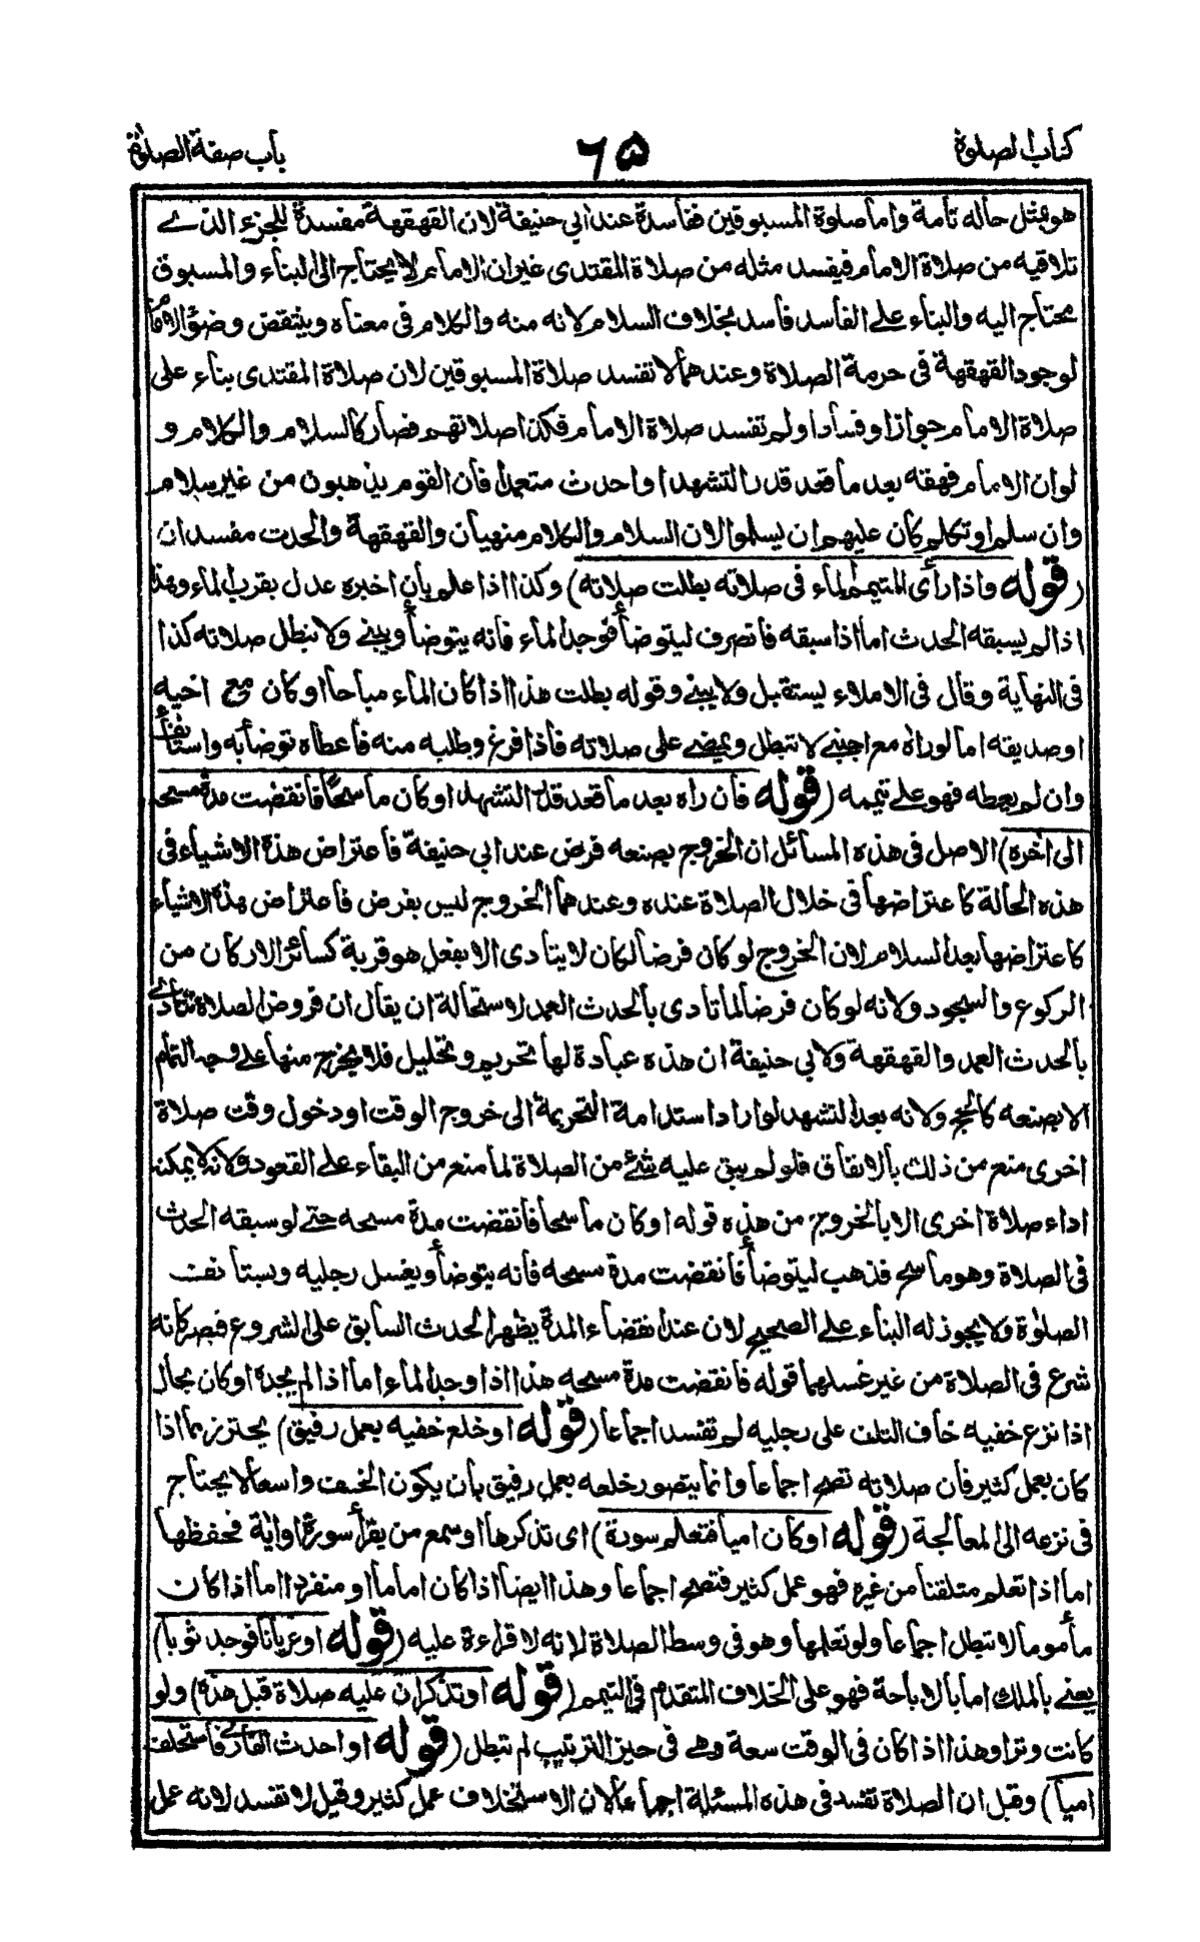 كتاب الصلوة
٦٥
باب صفة الصلوة
هو بمثل حاله تامة واما صلوة المسبوقين ففاسدة عند ابي حنيفة لان القهقهة مفسدة للجزء الذے
تلاقيه من صلاة الامام فيفسد مثله من صلاة المقتدى غير ان الامام لا يحتاج الى البناء والمسبوق
محتاج اليه والبناء على الفاسد فاسد بخلاف السلام لانه منه والكلام فى معناه وينتقض وضؤ الامام
لوجود القهقهة فى حرمة الصلاة وعندهما لا تفسد صلاة المسبوقين لان صلاة المقتدى بناء على
صلاة الامام جوازا وفسادا ولم تفسد صلاة الامام فكذا صلاتهم فصار كالسلام والكلام و
لو ان الامام قهقه بعد ما قعد قدر التشهد او احدث متعمدا فان القوم يذهبون من غير سلام
وان سلم او تكلم كان عليهم ان يسلموا لان السلام والكلام منهيان والقهقهة والحدث مفسدان
(قوله واذا رأى المتيمم الماء فى صلاته بطلت صلاته) وكذا اذا علم بان اخبره عدل بقرب الماء وهذا
اذا لم يسبقه الحدث اما اذا سبقه فانصرف ليتوضأ فوجد الماء فانه يتوضأ ويبنے ولا تبطل صلاته كذا
فى النهاية وقال فى الاملاء يستقبل ولا يبنے وقوله بطلت هذا اذا كان الماء مباحا او كان مع اخيه
او صديقه اما لو راه مع اجنبے لا تبطل ويمضے على صلاته فاذا فرغ وطلبه منه فاعطاه توضأ به واستأنف
وان لم يعطه فهو على تيممه (قوله فان راه بعد ما قعد قدر التشهد او كان ماسحا فانقضت مدة مسحه
الى اخره) الاصل فى هذه المسائل ان الخروج بصنعه فرض عند ابي حنيفة فاعتراض هذه الاشياء فى
هذه الحالة كاعتراضها فى خلال الصلاة عنده وعندهما الخروج ليس بفرض فاعتراض هذه الاشياء
كاعتراضها بعد السلام لان الخروج لو كان فرضا لكان لا يتادى الا بفعل هو قربة كسائر الاركان من
الركوع والسجود ولانه لو كان فرضا لما تادى بالحدث العمد لاستحالة ان يقال ان فروض الصلاة تتادے
بالحدث العمد والقهقهة ولابي حنيفة ان هذه عبادة لها تحريم وتحليل فلا يخرج منها على وجه التمام
الا بصنعه كالحج ولانه بعد التشهد لو اراد استدامة التحريمة الى خروج الوقت او دخول وقت صلاة
اخرى منع من ذلك بالاتفاق فلو لم يبق عليه شئ من الصلاة لما منع من البقاء على القعود ولانه لا يمكنه
اداء صلاة اخرى الا بالخروج من هذه قوله او كان ماسحا فانقضت مدة مسحه حتے لو سبقه الحدث
فى الصلاة وهو ماسح فذهب ليتوضأ فانقضت مدة مسحه فانه يتوضأ ويغسل رجليه ويستأنف
الصلوٰة ولا يجوز له البناء على الصحيح لان عند انقضاء المدة يظهر الحدث السابق على الشروع فيصير كانه
شرع فى الصلاة من غير غسلهما قوله فانقضت مدة مسحه هذا اذا وجد الماء اما اذا لم يجده او كان بحال
اذا نزع خفيه خاف التلف على رجليه لم تفسد اجماعا (قوله او خلع خفيه بعمل رفيق) يحترز بما اذا
كان بعمل كثير فان صلاته تصح اجماعا وانما يتصور خلعه بعمل رفيق بان يكون الخف واسعا لا يحتاج
فى نزعه الى المعالجة (قوله او كان اميا فتعلم سورة) اى تذكرها او سمع من يقرأ سورة او اية فحفظها
اما اذا تعلم متلقنا من غيره فهو عمل كثير فتصح اجماعا وهذا ايضا اذا كان اماما او منفردا اما اذا كان
مأموما لا تبطل اجماعا ولو تعلمها وهو فى وسط الصلاة لانه لا قراءة عليه (قوله او عريانا فوجد ثوبا)
يعنے بالملك اما بالاباحة فهو على الخلاف المتقدم فى التيمم (قوله او تذكر ان عليه صلاة قبل هذه) ولو
كانت وترا وهذا اذا كان فى الوقت سعة وهے فى حيز الترتيب لم تبطل (قوله او احدث القارئ فاستخلف
اميا) وقيل ان الصلاة تفسد فى هذه المسئلة اجماعا لان الاستخلاف عمل كثير وقيل لا تفسد لانه عمل